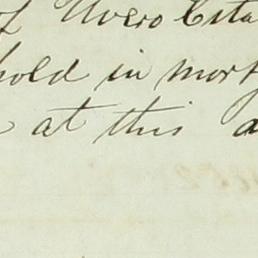 of Uvero Esta
hold in mort
at this a